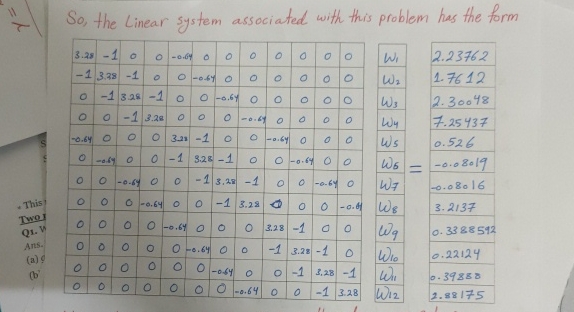 So, the Linear system associated with this problem has the form
3.28 -1 0 0 -0.64 0 0 0 0 0 0 0 W1 2.23762
-1 3.28 -1 0 0 -0.64 0 0 0 0 0 0 W2 1.7612
0 -1 3.28 -1 0 0 -0.64 0 0 0 0 0 W3 2.30048
0 0 -1 3.28 0 0 0 -0.64 0 0 0 0 W4 7.25437
-0.64 0 0 0 3.28 -1 0 0 -0.64 0 0 0 W5 0.526
0 -0.64 0 0 -1 3.28 -1 0 0 -0.64 0 0 W6 = -0.08019
0 0 -0.64 0 0 -1 3.28 -1 0 0 -0.64 0 W7 -0.08016
0 0 0 -0.64 0 0 -1 3.28 0 0 0 -0.64 W8 3.2137
0 0 0 0 -0.64 0 0 0 3.28 -1 0 0 W9 0.3388592
0 0 0 0 0 -0.64 0 0 -1 3.28 -1 0 W10 0.22124
0 0 0 0 0 0 -0.64 0 0 -1 3.28 -1 W11 0.39888
0 0 0 0 0 0 0 -0.64 0 0 -1 3.28 W12 2.88175
This
Two
Q1.
Ans.
(a)
(b)